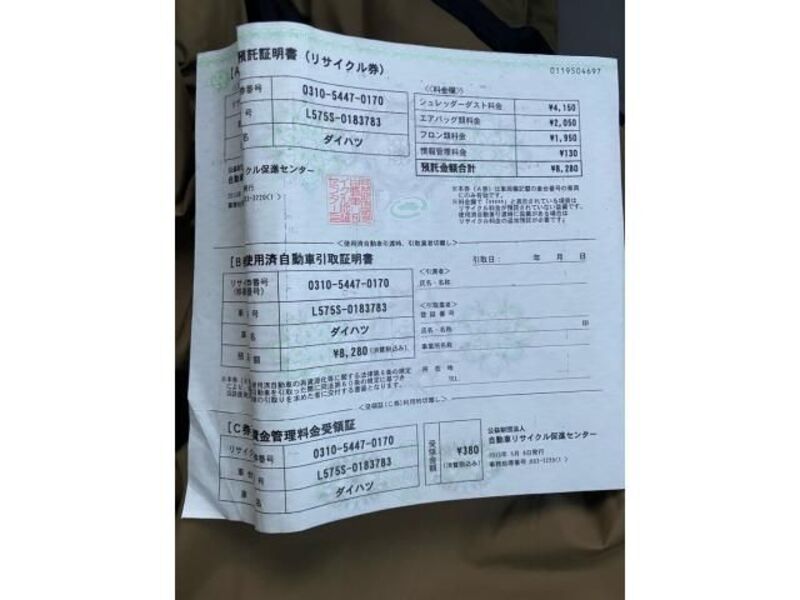 預託証明書(リサイクル券)
0119504697
[A
券番号
0310-5447-0170
号
L575S-0183783
名
ダイハツ
<料金欄>
シュレッダーダスト料金 ¥4,150
エアバッグ類料金 ¥2,050
フロン類料金 ¥1,950
情報管理料金 ¥130
預託金額合計 ¥8,280
クル促進センター
自動車
<使用済自動車引渡時、引取業者切離し>
[B 使用済自動車引取証明書
引取日: 年 月 日
リサイクル券番号
0310-5447-0170
車 号
L575S-0183783
車 名
ダイハツ
預 額
¥8,280(消費税込み)
<引渡者>
氏名・名称
<引取業者>
登録番号
氏名・名称
印
事業所名称
所在地
TEL
<受領証(C券)利用時切離し>
[C券 資金管理料金受領証
リサイクル券番号
0310-5447-0170
車 号
L575S-0183783
車 名
ダイハツ
受領金額
¥380
(消費税込み)
公益財団法人
自動車リサイクル促進センター